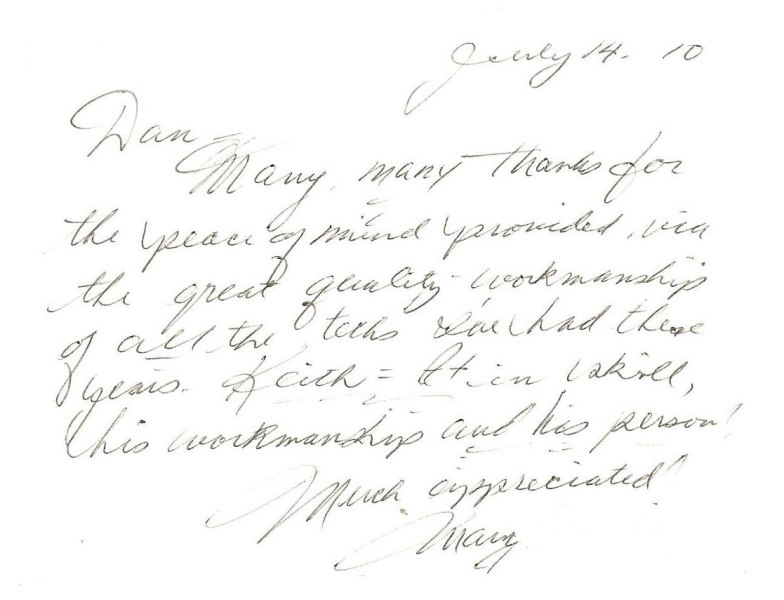 July 14. 10
Dan -
Many, many thanks for
the peace of mind provided, via
the great quality workmanship
of all the techs I've had these
years. Keith = A+ in skill,
his workmanship and his person!
Much appreciated!
Mary